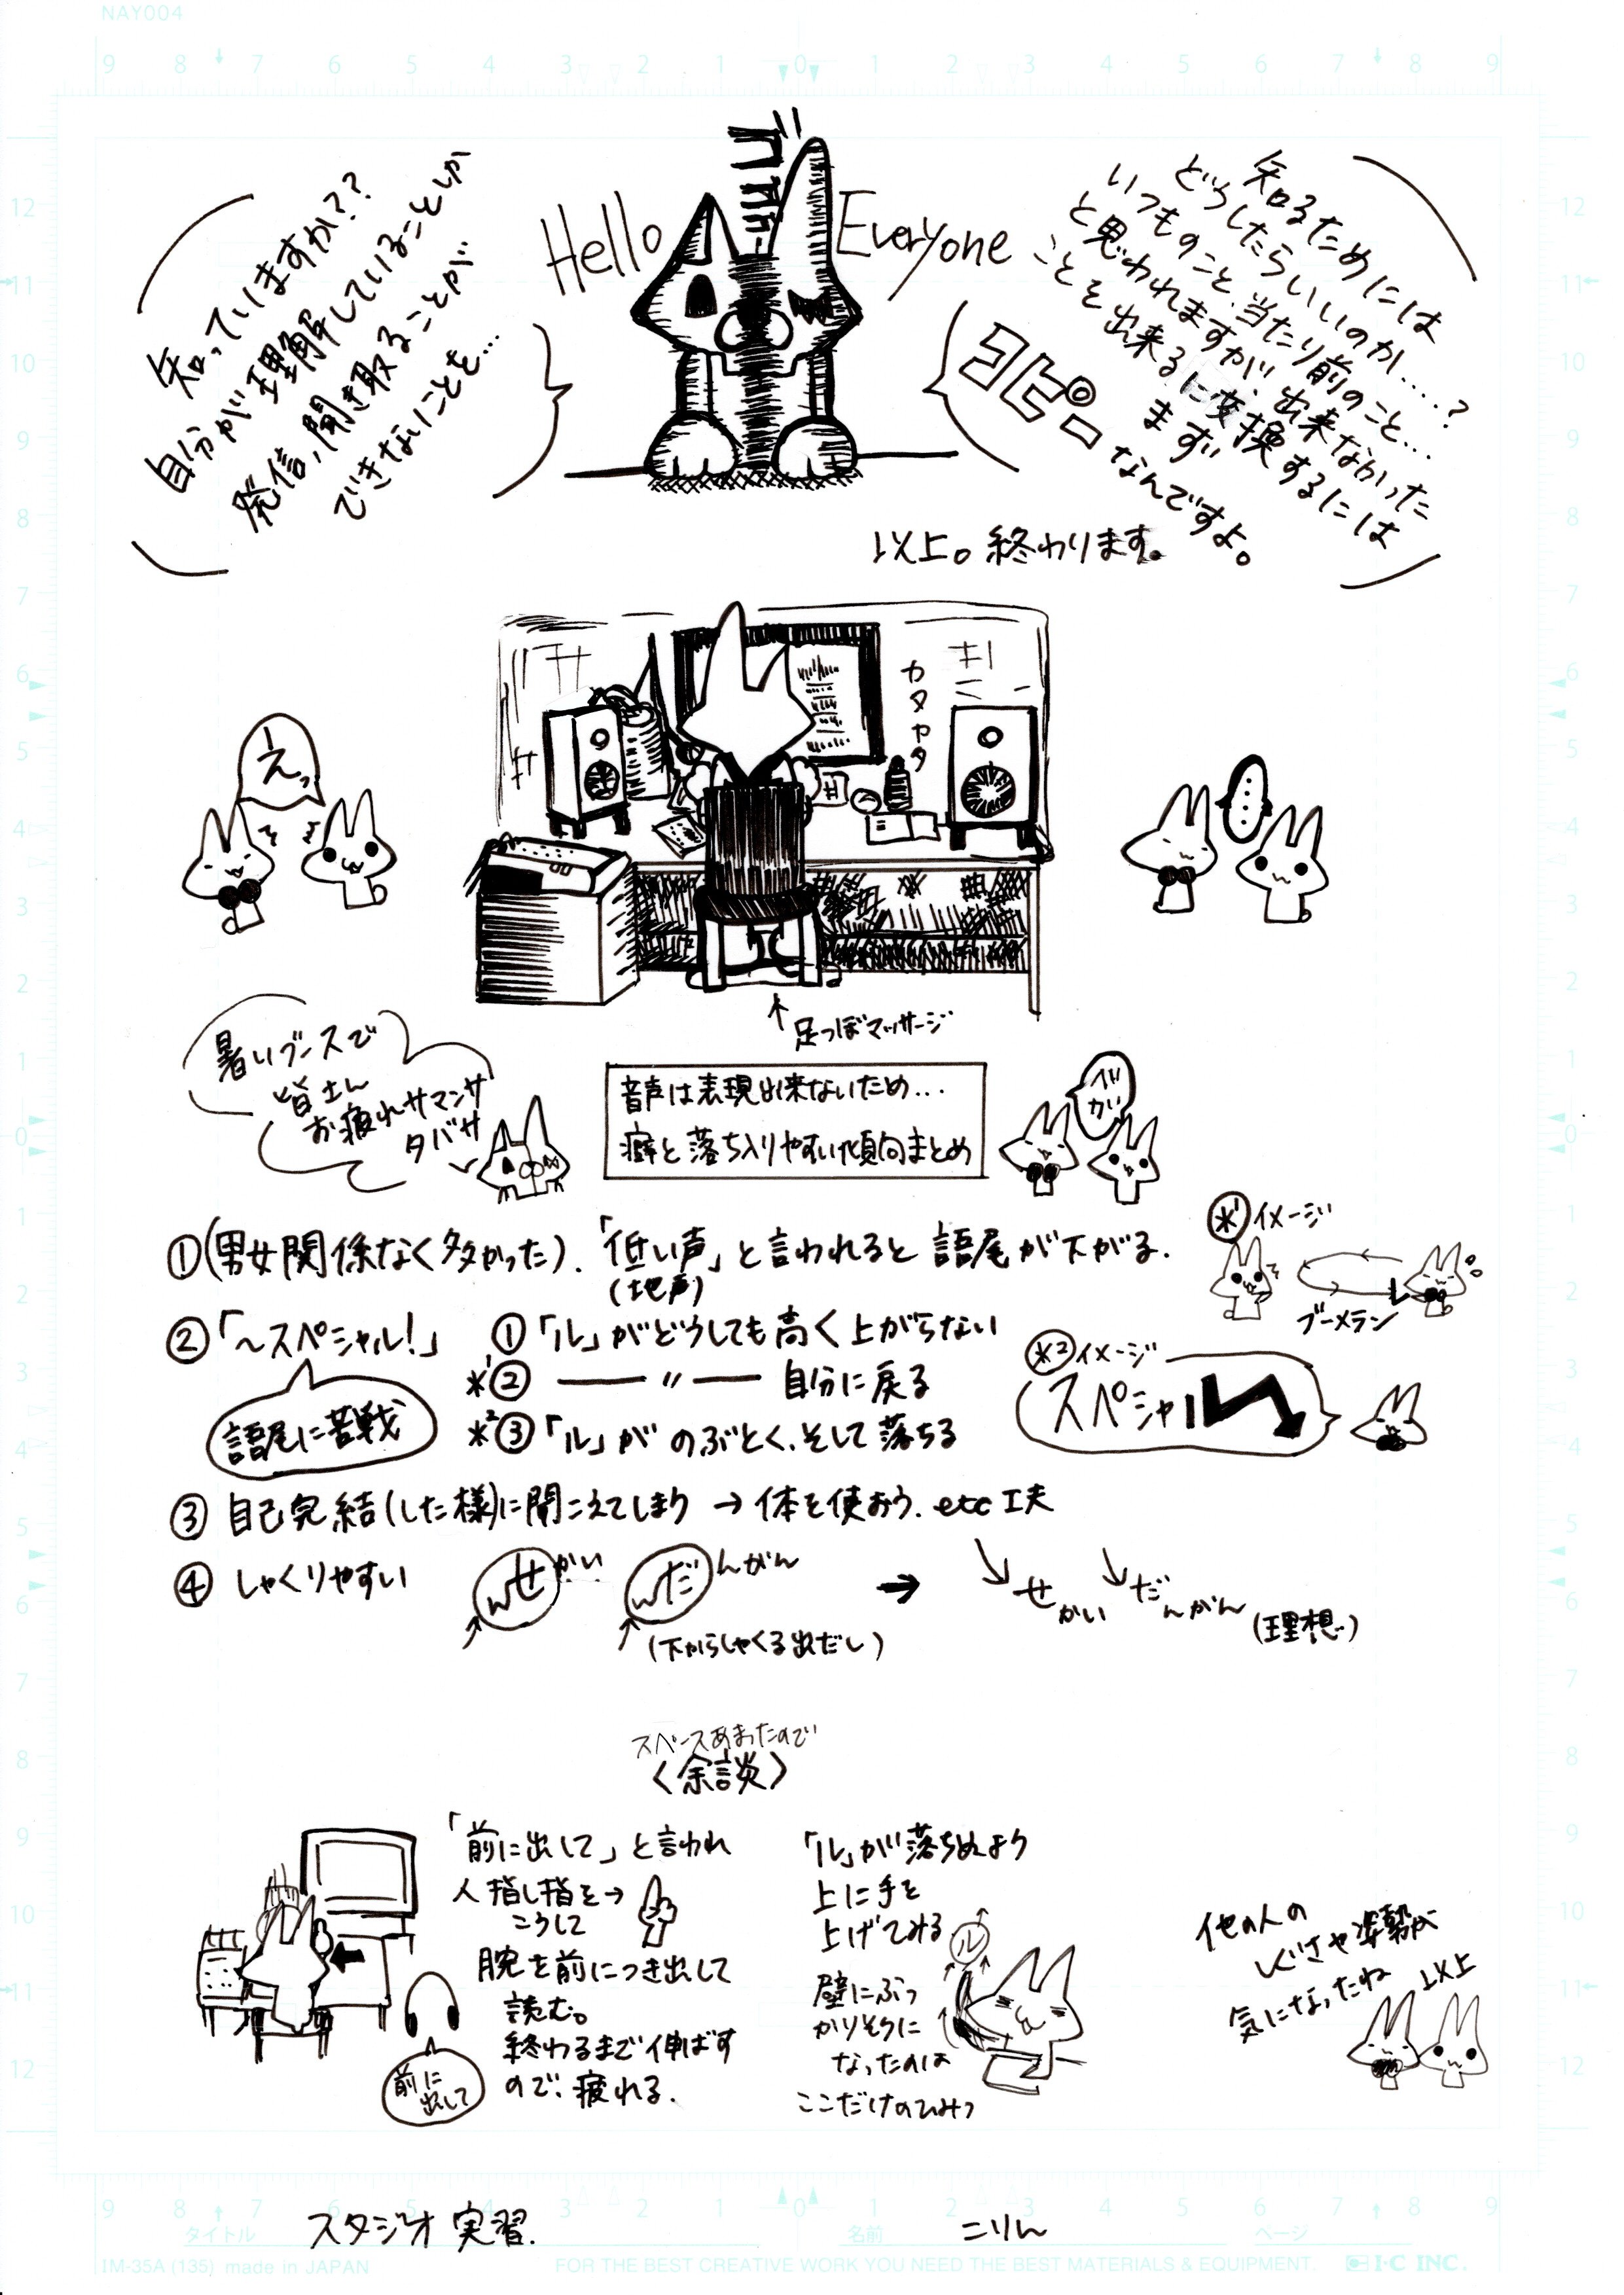 NAY004
Hello Everyone
知っていますか??
自分が理解していることしか
発信,聞き取ることが
できないことを…
知るためには
どうしたらいいのか……?
いつものこと、当たり前のこと…
と思われますが、出来なかった
ことを出来るに変換するには
まず
コピー なんですよ。
以上。終わります。
えっ
カタカタ
……
足つぼマッサージ
暑いブースで
皆さん
お疲れサマンサ
タバサ
音声は表現出来ないため…
癖と落ち入りやすい傾向まとめ
①(男女関係なく多かった).「低い声」と言われると語尾が下がる.
(地声)
*1 イメージ
ブーメラン
②「~スペシャル!」 ①「ル」がどうしても高く上がらない
*1② ―〃― 自分に戻る
*2③「ル」がのぶとく、そして落ちる
語尾に苦戦
*2 イメージ
スペシャル
③ 自己完結(した様)に聞こえてしまう → 体を使おう. etc工夫
④ しゃくりやすい せかい だんがん → せかい だんがん (理想)
(下からしゃくる出だし)
スペースあまったので
〈余談〉
「前に出して」と言われ
人指し指を→
こうして
腕を前につき出して
読む。
終わるまで伸ばす
ので、疲れる.
前に
出して
「ル」が落ちぬよう
上に手を
上げてみる
ル
壁にぶつ
かりそうに
なったのは
ここだけのひみつ
他の人の
しぐさや姿勢が
気になったね
以上
タイトル スタジオ実習.
名前 こりん
ページ
IM-35A (135) made in JAPAN
FOR THE BEST CREATIVE WORK YOU NEED THE BEST MATERIALS & EQUIPMENT.
I・C INC.